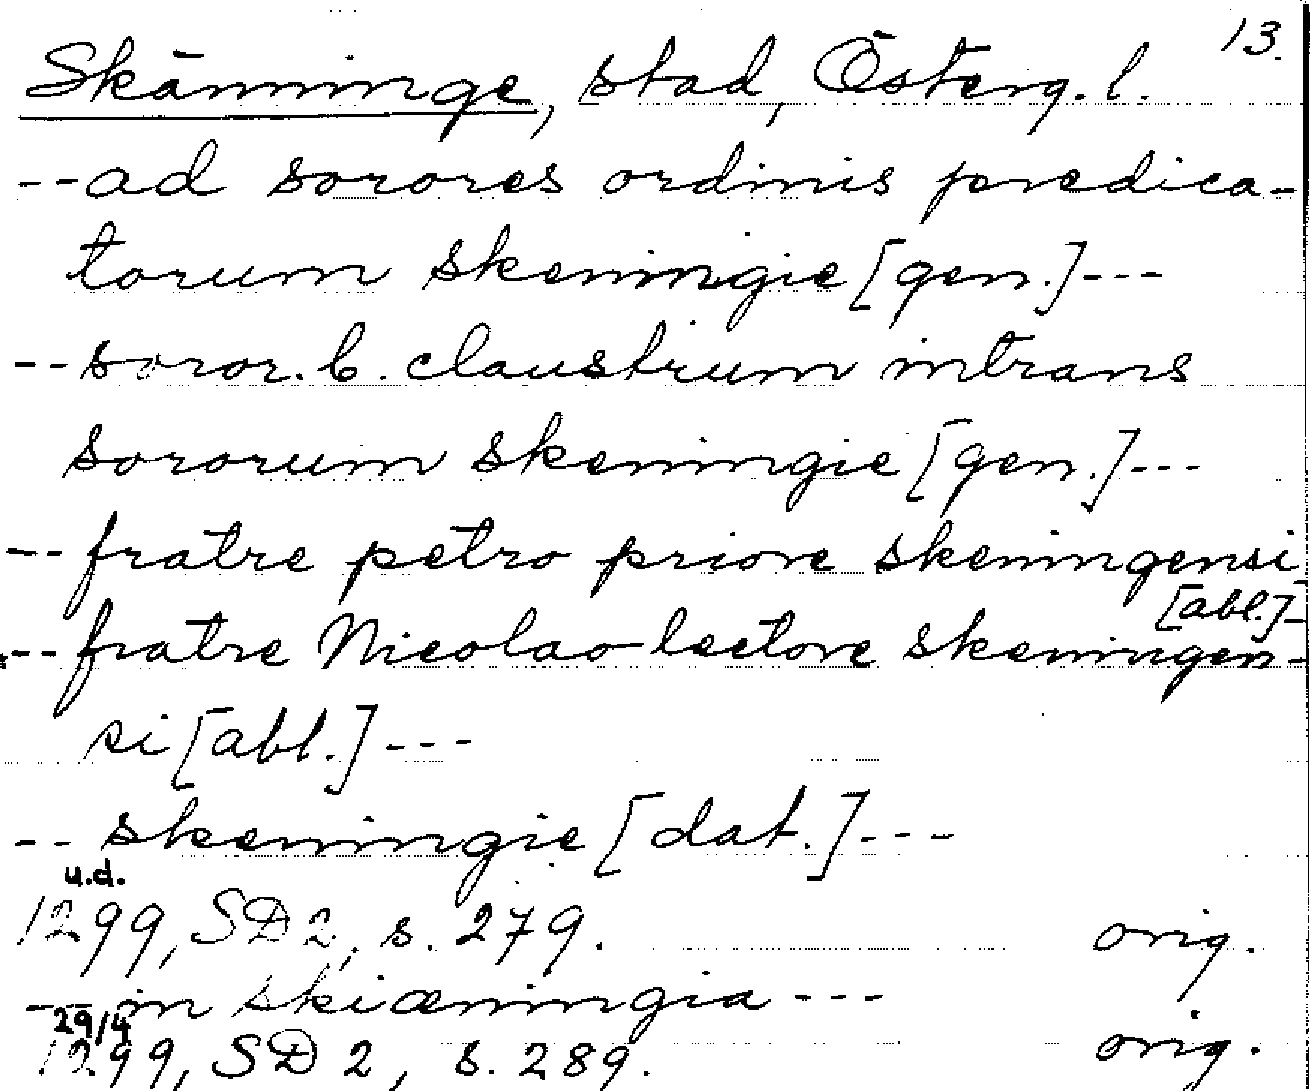 13.
Skänninge, stad, Österg. l.
--ad sorores ordinis predica-
torum skeningie [gen.]---
--soror. b. claustrum intrans
sororum skeningie [gen.]---
-- fratre petro priore skeningensi
[abl.]-
--- fratre Nicolao lectore skeningen-
si [abl.]---
-- skeningie [dat.]---
u.d.
1299, SD 2, s. 279. orig.
-- in skiæningia ---
29/4
1299, SD 2, s. 289. orig.